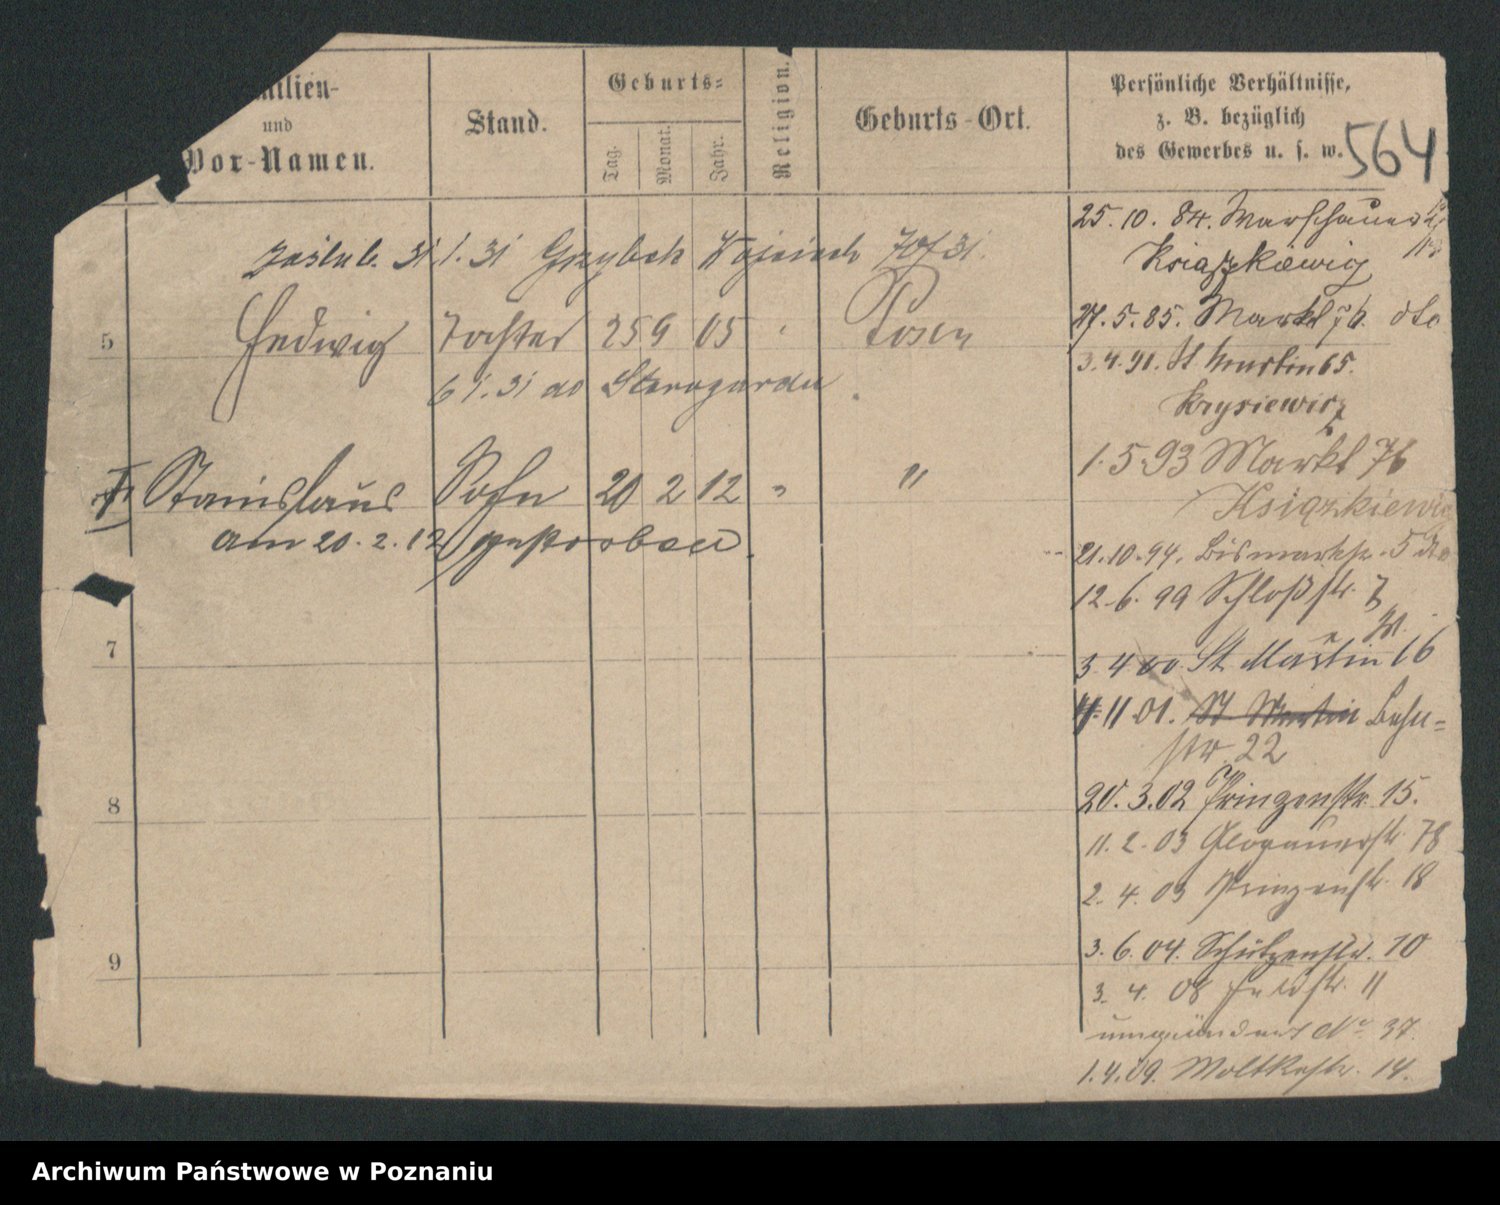 Familien-
und
Vor-Namen.
Stand.
Geburts-
Tag.
Monat.
Jahr.
Religion.
Geburts-Ort.
Persönliche Verhältnisse,
z. B. bezüglich
des Gewerbes u. s. w.
564
zaślub. 31.1.31 Grzybek Wojciech
5 Hedwig Tochter 25 9 05 Posen
6 1.31 do Starogardu
Stanislaus Sohn 20 2 12 "
am 20.2.12 gestorben.
7
8
9
25.10.84. Warschauer
Książkiewicz
27.5.85. Markt 76. dto
3.4.91. St Martin 65.
Krysiewicz
1.5 93 Markt 76
Książkiewicz
21.10.94. Bismarkstr. 5
12.6.99 Schloßstr. 7
3.4 00 St Martin 16
11 01. St Martin Bahn-
str 22
20.3.02 Prinzenstr. 15.
11.2.03 Glogauerstr 78
2.4.03 Prinzenstr. 18
3.6.04. Schützenstr. 10
3.4.08 Feldstr. 11
umgeändert No 37.
1.4.09. Moltkestr. 14.
Archiwum Państwowe w Poznaniu